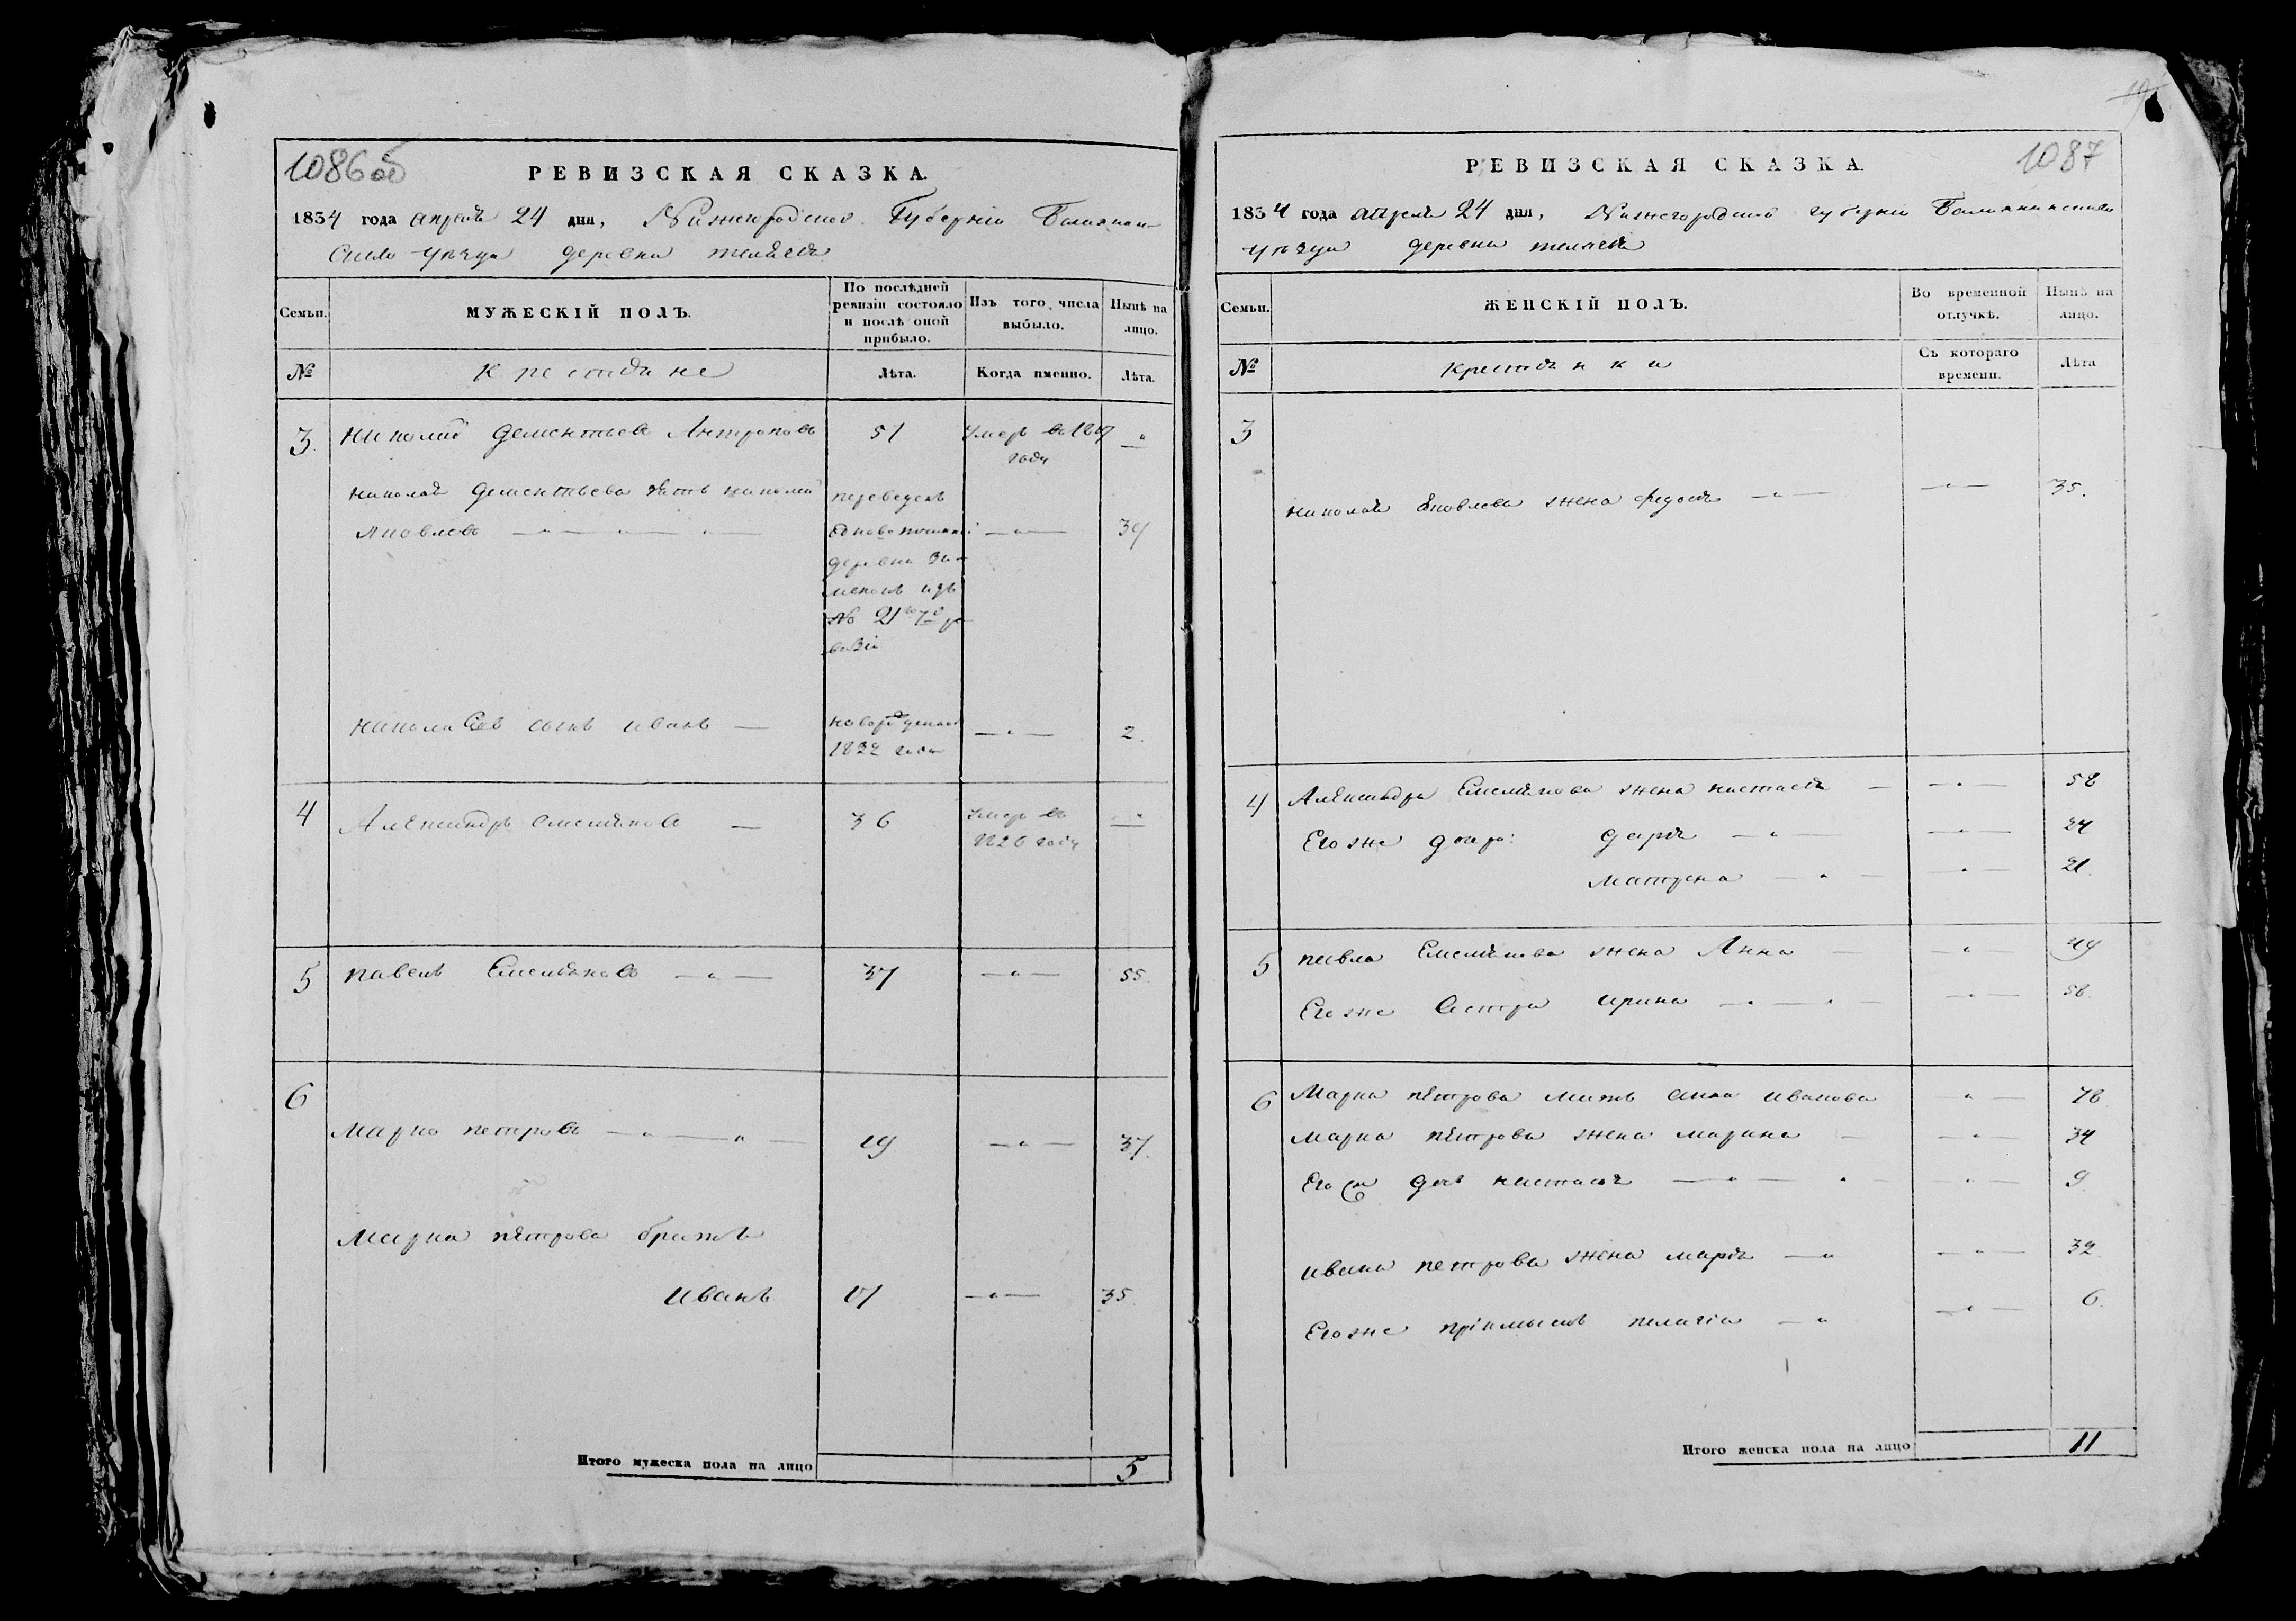 1086об
РЕВИЗСКАЯ СКАЗКА.
1834 года апреля 24 дня, Нижегородской Губерніи Балахнин-
скаго уѣзда деревни
Семьи. МУЖЕСКІЙ ПОЛЪ. По послѣдней ревизіи состояло и послѣ оной прибыло. Изъ того числа выбыло. Нынѣ на лицо.
№ Крестьяне Лѣта. Когда именно. Лѣта.
3 Николай Дементьевъ Антроповъ 51 Умеръ въ
году
Николая Дементьева зять Николай переведенъ
Яковлевъ одновотчинной 39
деревни За-
изъ
№ 21го 7й ре-
визіи
Николаевъ сынъ Иванъ новорожденной 2.
1832 года
4 Александръ Емельяновъ 36 Умеръ въ
1826 году
5 Павелъ Емельяновъ 37 55.
6
Марко Петровъ 19 37.
Марка Петрова братъ
Иванъ 17 35.
Итого мужеска пола на лицо 5
1087
РЕВИЗСКАЯ СКАЗКА.
1834 года апреля 24 дня, Нижегородской губерніи Балахнинскаго
уѣзда деревни
Семьи. ЖЕНСКІЙ ПОЛЪ. Во временной отлучкѣ. Нынѣ на лицо.
№ Крестьянки Съ котораго времени. Лѣта
3
Николая Яковлева жена Федосья 35.
4 Александра Емельянова жена Настасья 58
Его же дочери: Дарья 24
Матрена 21.
5 Павла Емельянова жена Анна 49
Его же Сестра Ирина 58.
6 Марка Петрова мать Анна Иванова 78
Марка Петрова жена Марина 34
Его дочь Настасья 9
Ивана Петрова жена Марья 32
Его же Пелагія 6.
Итого женска пола на лицо 11